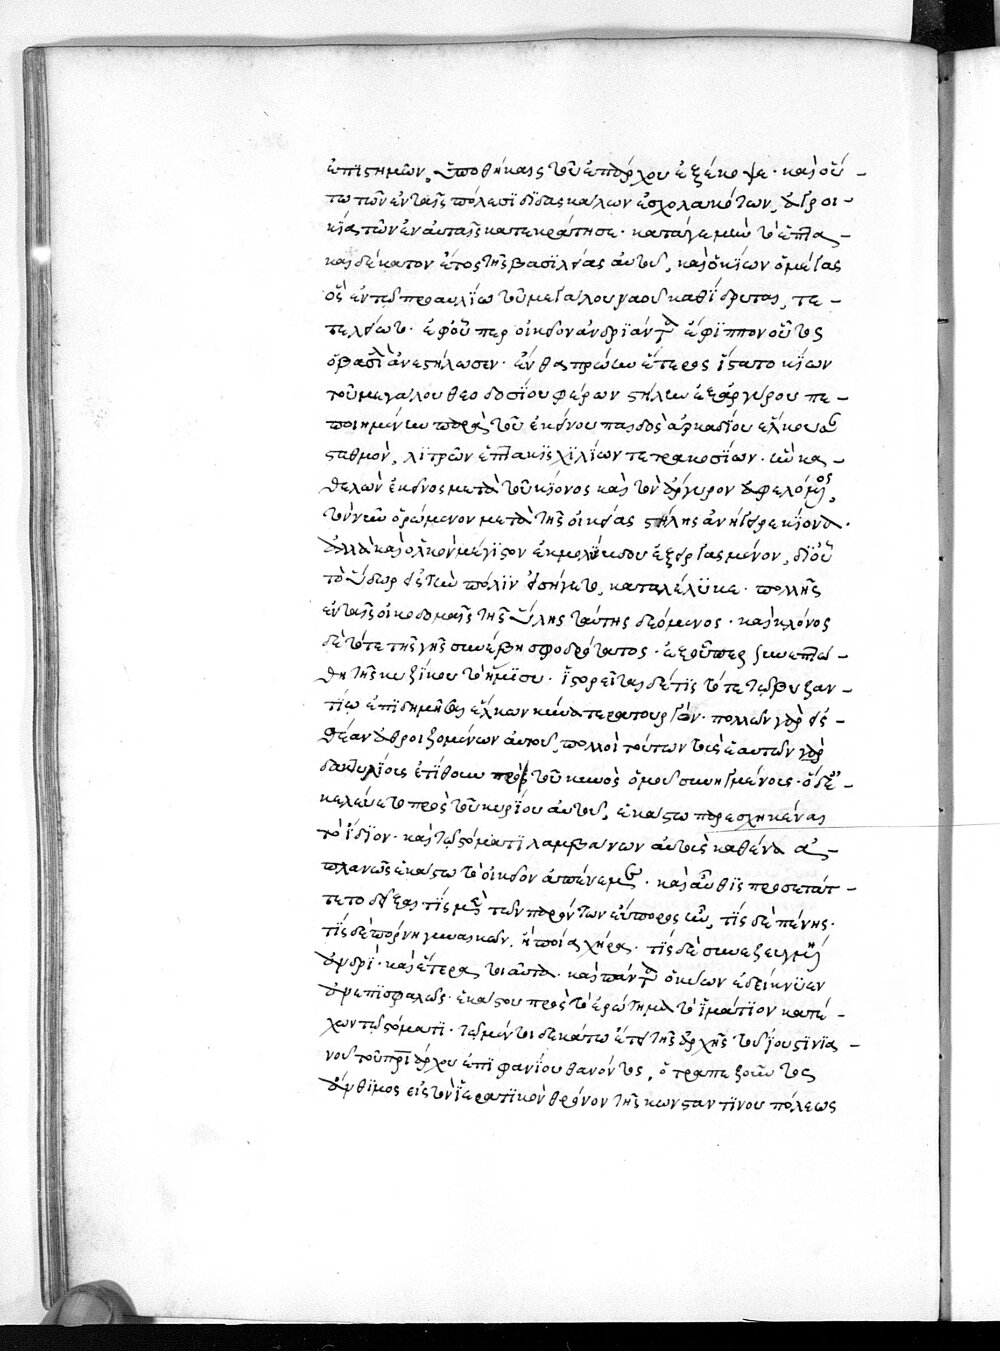 ἐπιστημῶν, ὑποθήκαις τοῦ ἐπάρχου ἐξέκοψε· καὶ οὕ-
τω τῶν ἐν ταῖς πόλεσι διδασκάλων ἐσχολακότων, ἀγροι-
κία τῶν ἐν αὐταῖς κατεκράτησε· κατάγε μὲν τὸ ἑπτα-
καιδέκατον ἔτος τῆς βασιλείας αὐτοῦ, καὶ ὁ κίων ὁ μέγας
ὃς ἐν τῷ προαυλίῳ τοῦ μεγάλου ναοῦ καθίδρυται, τε-
τέλεστο· ἐφ' οὗπερ οἰκεῖον ἀνδριάντα ἔφιππον οὗτος
ὁ βασιλεὺς ἀνεστήλωσεν· ἔνθα πρώην ἕτερος ἵστατο κίων
τοῦ μεγάλου θεοδοσίου φέρων στήλην ἐξ ἀργύρου πε-
ποιημένην παρὰ τοῦ ἐκείνου παιδὸς ἀρκαδίου ἕλκουσαν
σταθμὸν, λιτρῶν ἑπτακισχιλίων τετρακοσίων· ὃν κα-
θελὼν ἐκεῖνος μετὰ τοῦ κίονος καὶ τὸν ἄργυρον ἀφελόμενος,
τὸν νῦν ὁρώμενον μετὰ τῆς οἰκείας στήλης ἀνήγειρε κίονα·
ἀλλὰ καὶ ὁλκὸν μέγιστον ἐκ μολίβδου ἐξειργασμένον, δι' οὗ
τὸ ὕδωρ εἰς τὴν πόλιν εἰσήγετο, καταλέλυκε· πολλῆς
ἐν ταῖς οἰκοδομαῖς τῆς ὕλης ταύτης δεόμενος· καὶ κλόνος
δὲ τότε τῆς γῆς συνέβη σφοδρότατος· ἐξ οὗπερ συνεπτώ-
θη τῆς κυζίκου τὸ ἥμισυ· ἱστορεῖται δέ τις τότε τῷ βυζαν-
τίῳ ἐπιδημῆσαι ἕλκων κύνα τερατουργόν· πολλῶν γὰρ εἰς
θέαν ἀθροιζομένων αὐτοῦ, πολλοὶ τούτων τοὺς ἑαυτῶν
δακτυλίους ἐτίθουν πρὸς τοῦ κυνὸς ὁμοῦ συνηγμένους· ὁ δὲ
κελεύετο πρὸς τοῦ κυρίου αὐτοῦ, ἑκάστω παρεσχηκέναι
τὸ ἴδιον· καὶ τῷ στόματι λαμβάνων αὐτοὺς καθένα ἀ-
πλανῶς ἑκάστω τὸ οἰκεῖον ἀπένεμεν· καὶ αὖθις προσετάτ-
τετο δεῖξαι τίς μὲν τῶν παρόντων εὔπορος ὢν, τίς δὲ πένης·
τίς δὲ πόρνη γυναικῶν. ἢ ποία χήρα· τίς δὲ συνεζευγμένη
ἀνδρὶ· καὶ ἕτερα τοιαῦτα· καὶ πάντα ὁ κύων ἐδείκνυεν
ἀνεπισφαλῶς· ἑκάστου πρὸς τὸ ἐρώτημα τὸ ἱμάτιον κατέ-
χων τῷ στόματι· τῷ μέντοι δεκάτω ἔτει τῆς ἀρχῆς τοῦ ἰουστινια-
νοῦ τοῦ πατριάρχου ἐπιφανίου θανόντος, ὁ τραπεζοῦντος
ἄνθιμος εἰς τὸν ἱερατικὸν θρόνον τῆς κωνσταντίνου πόλεως